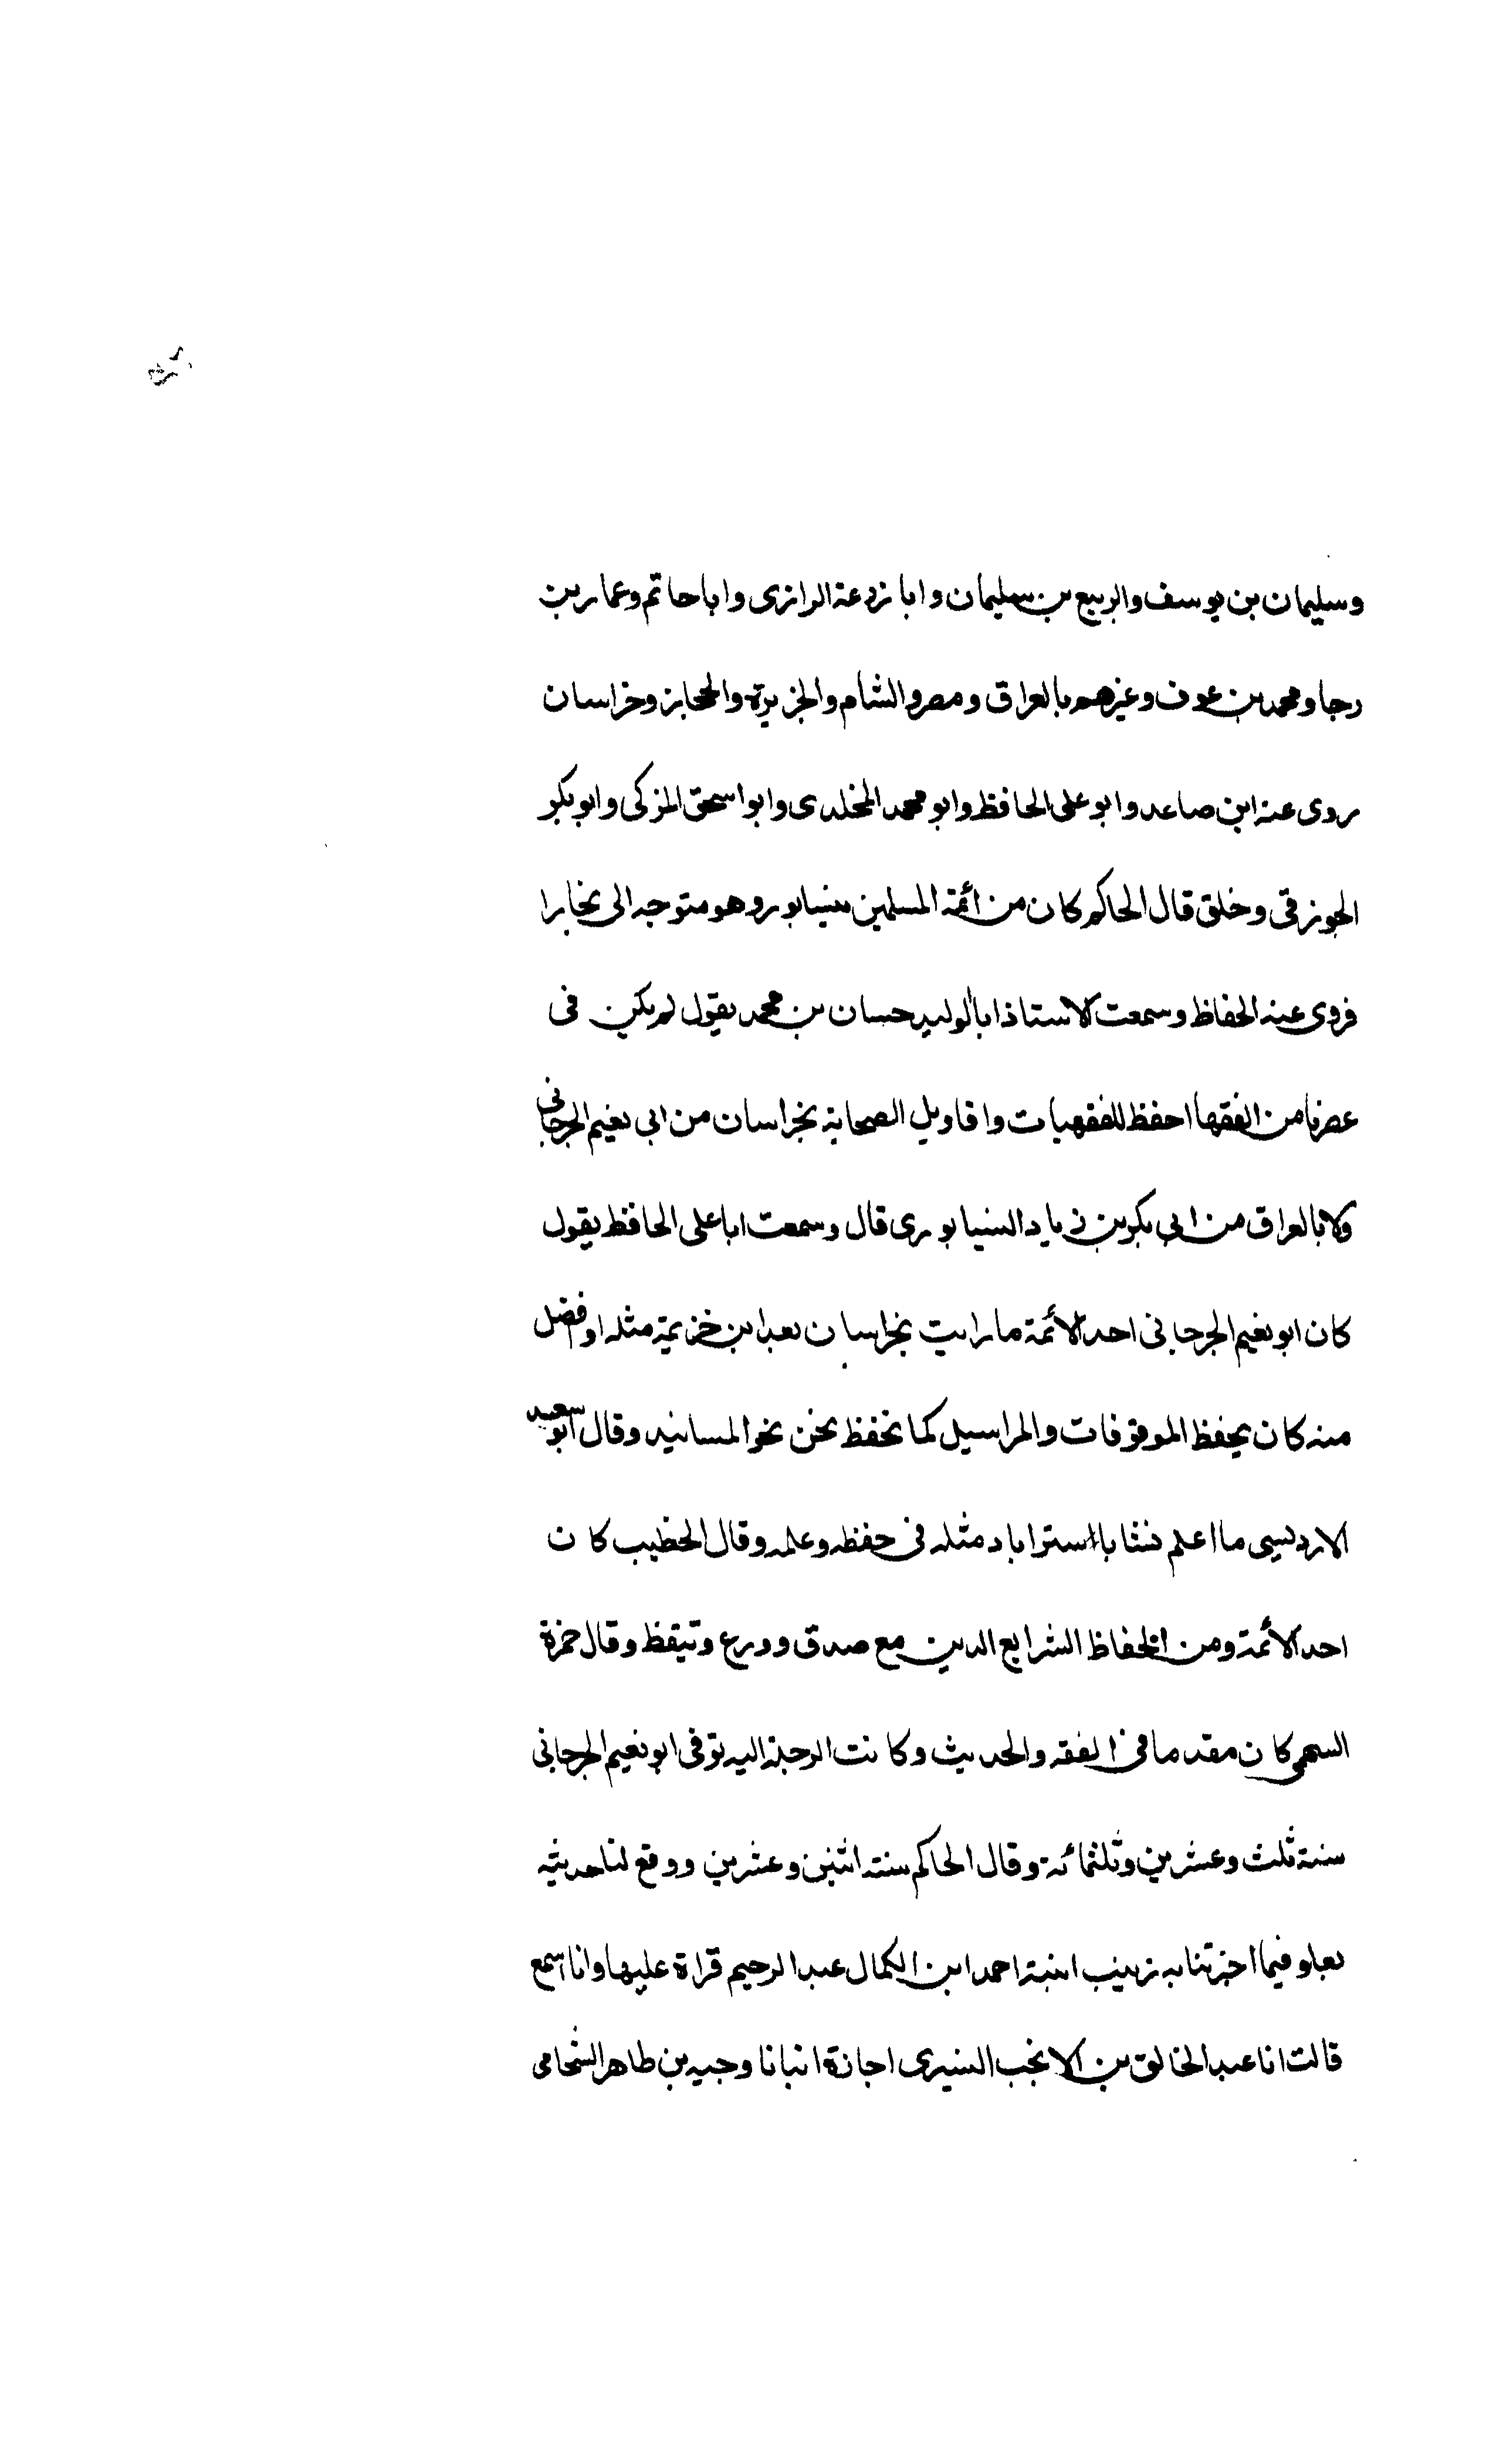 وسليمان بن يوسف والربيع بن سليمان وابا زرعة الرازى واباحاتم وعمار بن
رجا ومحمد بن عوف وغيرهم بالعراق ومصر والشام والجزيرة والحجاز وخراسان
روى عنه ابن صاعد وابو على الحافظ وابو محمد المخلدى وابو اسحق المزكى وابو بكر
الجوزقى وخلق قال الحاكم كان من ائمة المسلمين بنيسابور وهو متوجه الى بخارا
فروى عنه الحفاظ وسمعت الاستاذ ابا الوليد حسان بن محمد يقول لم يكن فى
عصرنا من الفقها احفظ للفقهيات واقاويل الصحابة بخراسان من ابى نعيم الجرجانى
ولا بالعراق من ابى بكر بن زياد النيسابورى قال وسمعت ابا على الحافظ يقول
كان ابو نعيم الجرجانى احد الائمة ما رايت بخراسان بعد ابن خزيمة مثله او افضل
منه كان يحفظ الموقوفات والمراسيل كما نحفظ نحن نحو المسانيد وقال ابو سعيد
الادريسى ما اعلم نشا باستراباد مثله فى حفظه وعلمه وقال الخطيب كان
احد الائمة ومن الحفاظ الشرايع الدين مع صدق وورع وتيقظ وقال حمزة
السهمى كان مقدما فى الفقه والحديث وكانت الرحلة اليه توفى ابو نعيم الجرجانى
سنة ثلث وعشرين وثلثمائة وقال الحاكم سنة اثنين وعشرين ووقع لنا حديثه
بعلو فيما اخبرتنا به زينب ابنة احمد ابن الكمال عبد الرحيم قراة عليها وانا اسمع
قالت انا عبد الخالق بن الانجب النشيرى اجازة انبانا وجيه بن طاهر الشحامى